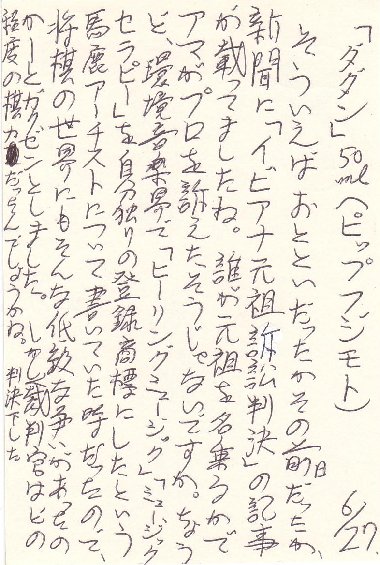 6/27,
「ダグメン」50ml(ピップフジモト)
そういえばおとといだったかその前日だったか、
新聞に「イビアナ元祖訴訟判決」の記事
が載ってましたね。誰が元祖を名乗るかで
アマがプロを訴えたそうじゃないですか。ちょう
ど、環境音楽界で「ヒーリングミュージック」「ミュージック
セラピー」を自分独りの登録商標にしたという
馬鹿アーチストについて書いていた時だったので、
将棋の世界にもそんな低級な争いがあったの
かーとガクゼンとしました。しかし裁判官はどの
程度の棋力だったんでしょうかね。判決下した